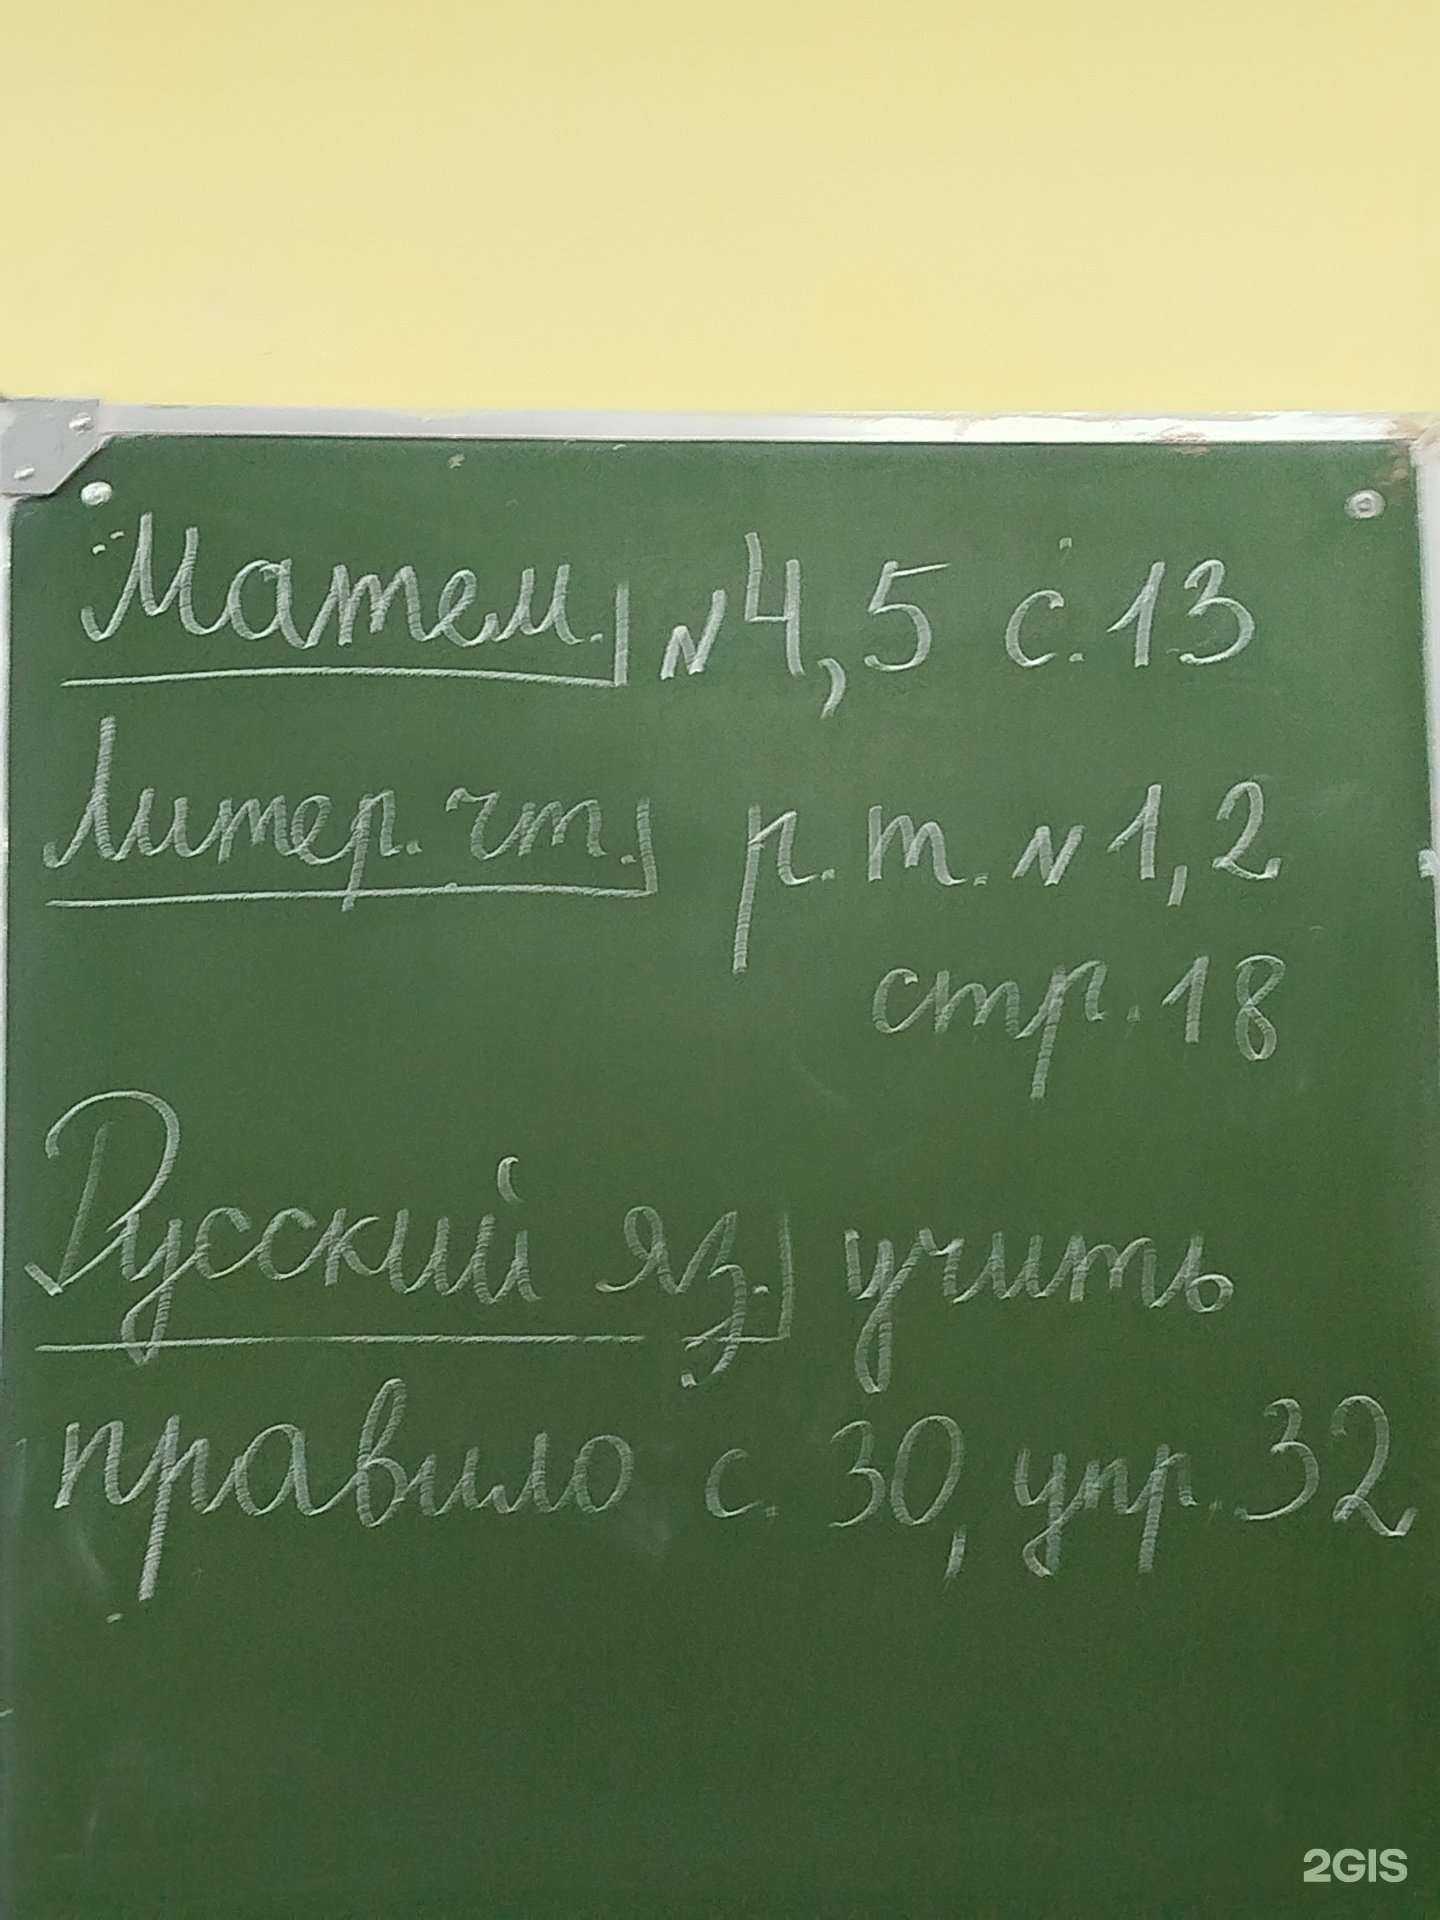 Матем. N 4, 5 с. 13
Литер. чт. р. т. N 1, 2
стр. 18
Русский яз. учить
правило с. 30, упр. 32
2GIS